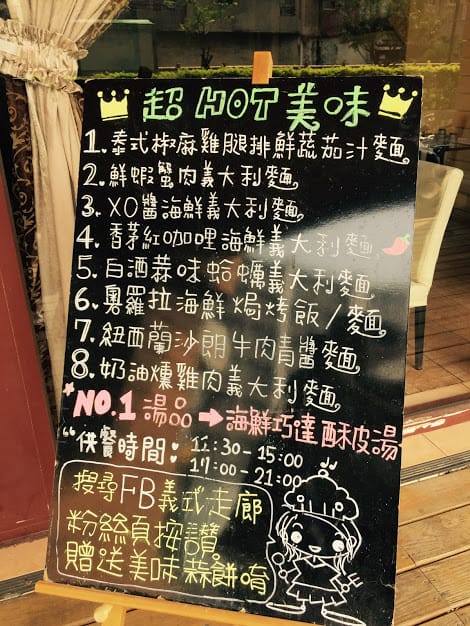 超HOT美味
1.泰式椒麻雞腿排鮮蔬茄汁麵
2.鮮蝦蟹肉義大利麵
3.XO醬海鮮義大利麵
4.香茅紅咖哩海鮮義大利麵
5.白酒蒜味蛤蠣義大利麵
6.暑羅拉海鮮焗烤飯/麵
7.紐西蘭沙朗牛肉青醬麵
8.奶油燻雞肉義大利麵
*NO.1湯品➡海鮮巧達酥皮湯
"供餐時間: 11:30-15:00
17:00-21:00"
搜尋FB義式走廊
粉絲頁按讚
贈送美味蒜餅唷